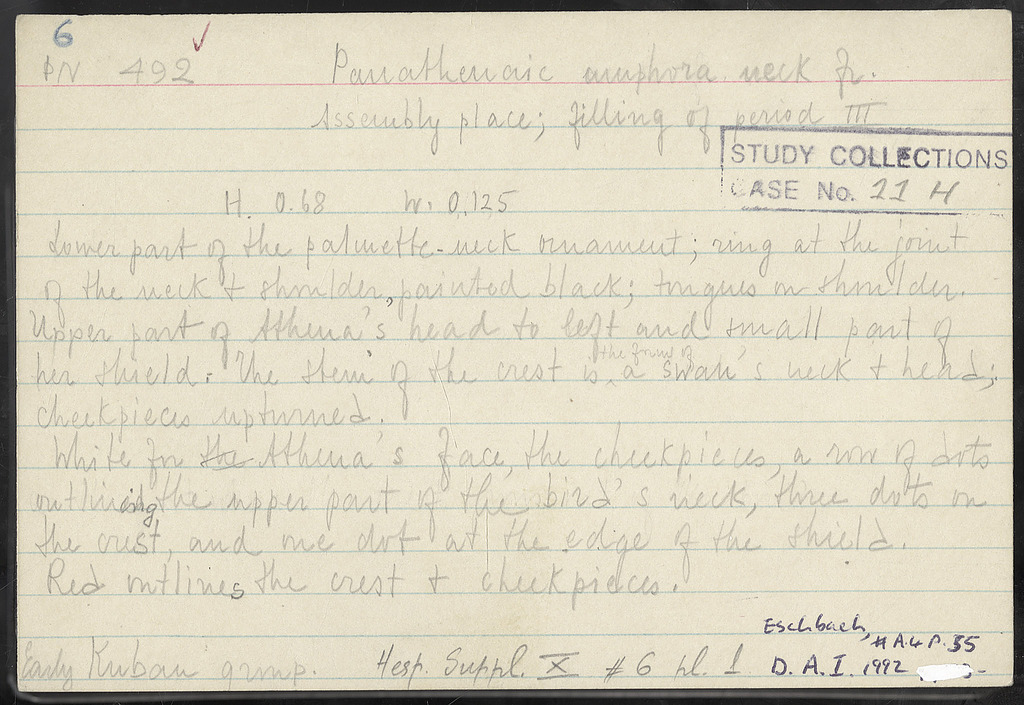 6
PN 492 Panathenaic amphora neck fr.
Assembly place; filling of period III
STUDY COLLECTIONS
CASE No. 11 H
H. 0.68 W. 0,125
Lower part of the palmette-neck ornament; ring at the joint
of the neck + shoulder, painted black; tongues on shoulder.
Upper part of Athena's head to left and small part of
her shield. The stem of the crest is the form of a swan's neck + head;
cheekpieces upturned.
White for the Athena's face, the cheekpieces, a row of dots
outlining the upper part of the bird's neck, three dots on
the crest, and one dot at the edge of the shield.
Red outlines the crest + cheekpieces.
Early Kuban group. Hesp. Suppl. X # 6 pl. 1
Eschbach, # A.4 P. 35
D.A.I. 1992